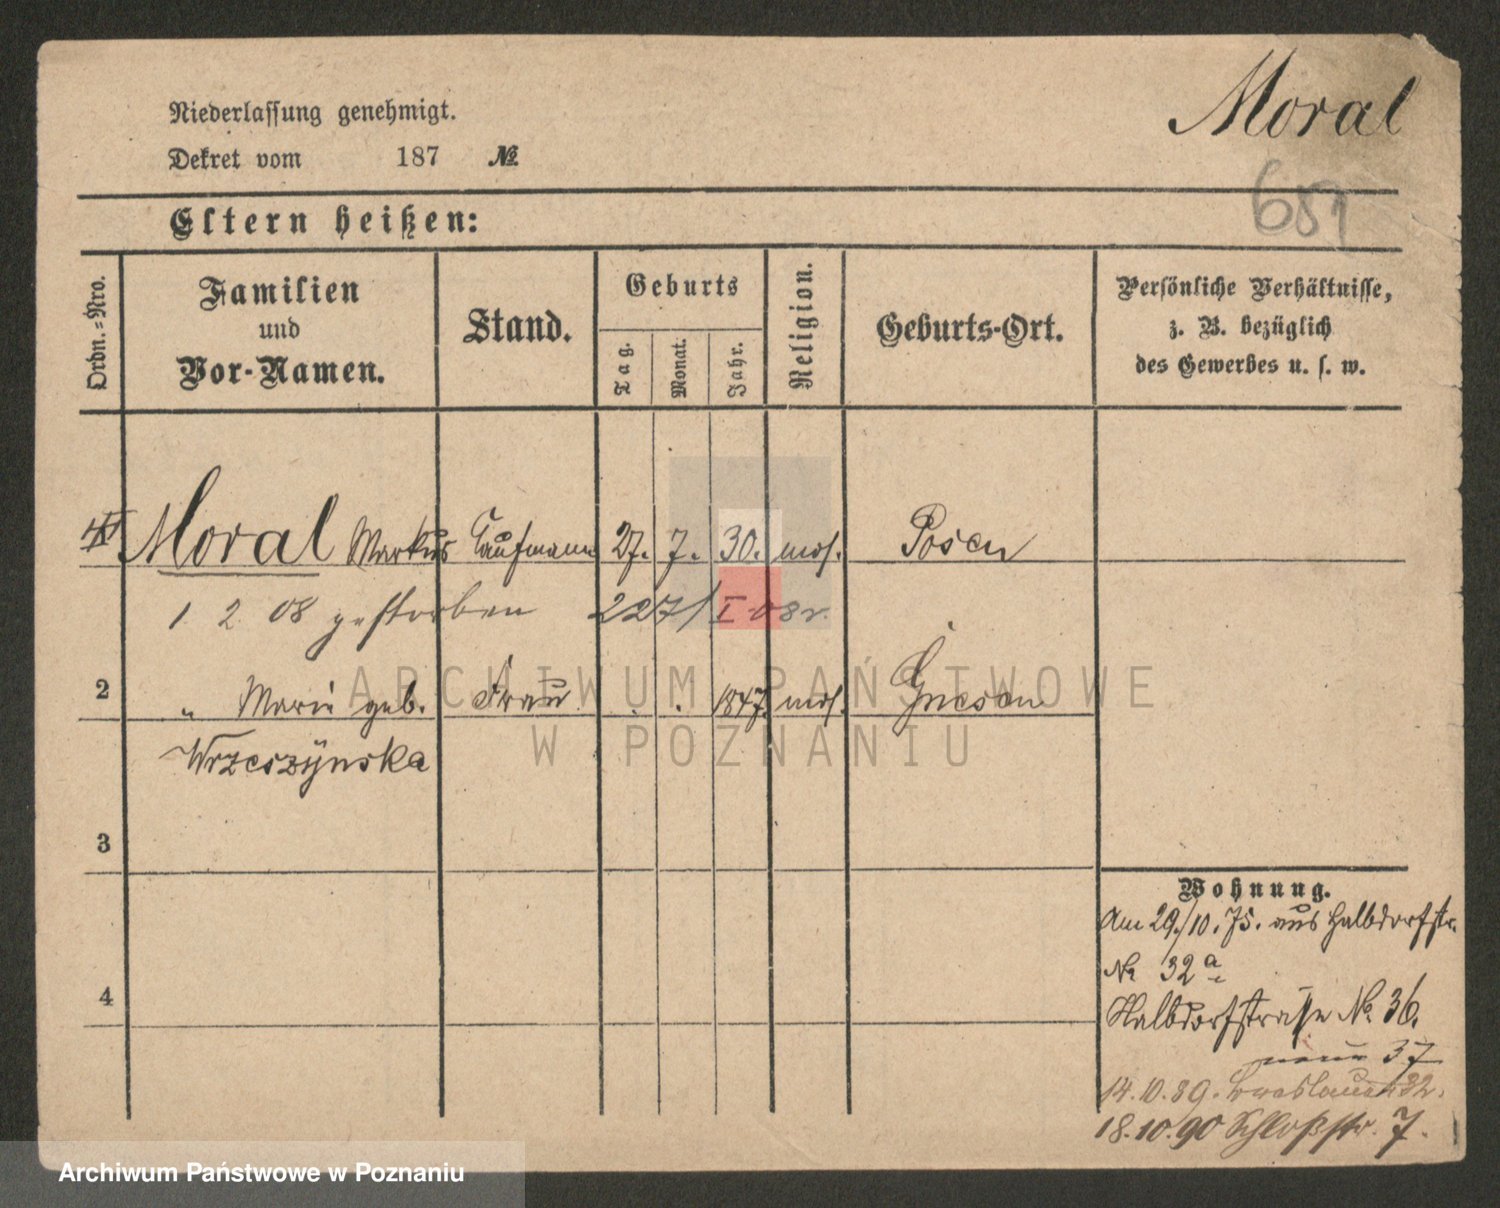 Moral
Niederlassung genehmigt.
Dekret vom 187 №
681
Eltern heißen:
Ordn.=Nro.
Familien
und
Vor-Namen.
Stand.
Geburts
Tag.
Monat.
Jahr.
Religion.
Geburts-Ort.
Persönliche Verhältnisse,
z. B. bezüglich
des Gewerbes u. s. w.
Moral Markus Kaufmann 27. 7. 30. mos. Posen
1. 2. 08 gestorben 227/I 08
2 " Marie geb. Frau 1847. mos. Gnesen
Wrzeszÿnska
3
4
Wohnung.
Am 29./10. 75. aus Halbdorfstr.
No 32a
Halbdorfstraße No. 36.
neue 37
14.10.89. Breslauer 32.
18.10.90 Schloßstr. 7.
ARCHIWUM PAŃSTWOWE
W POZNANIU
Archiwum Państwowe w Poznaniu